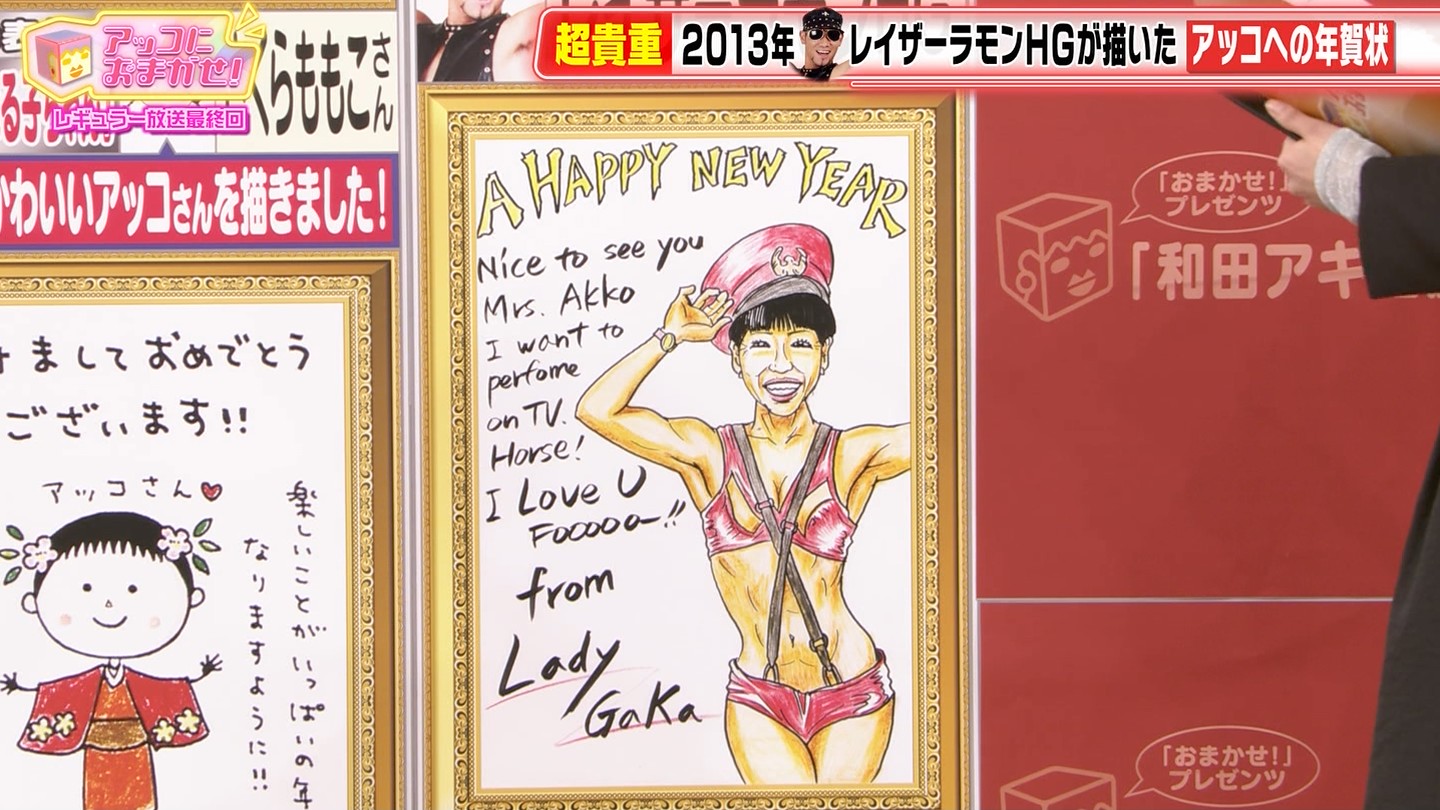 アッコに
おまかせ!
レギュラー放送最終回
超貴重 2013年 レイザーラモンHGが描いた アッコへの年賀状
くらももこさん
かわいいアッコさんを描きました!
ましておめでとう
ございます!!
アッコさん
楽しいことがいっぱいの年
なりますように!!
A HAPPY NEW YEAR
Nice to see you
Mrs. Akko
I want to
perfome
on TV.
Horse!
I Love U
Fooooo-!!
from
Lady
GaKa
「おまかせ!」
プレゼンツ
「和田アキ
「おまかせ!」
プレゼンツ